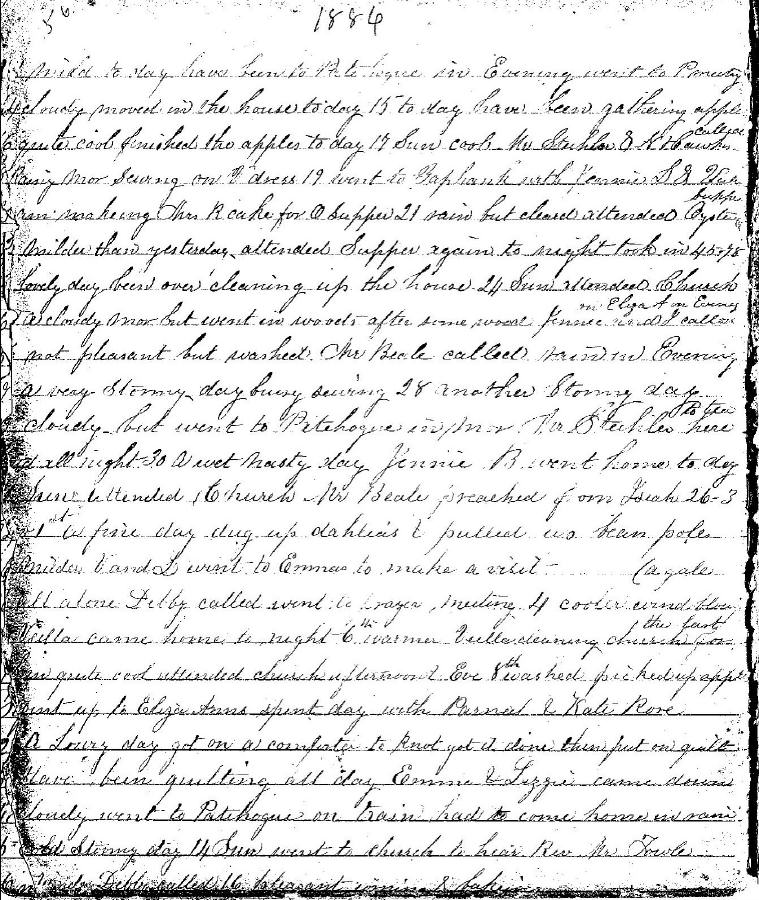 56
1884
mild to day have been to Patchogue in Evening went to
cloudy moved in the house to day 15 to day have been gathering apple
quite cool finished the apples to day 17 Sun cool Mr Stehler & H Hawkn
called
Rainy Mor Sewing on V dress 19 went to Yaphank with Jennie S &
suppe
am making Mrs R cake for O Supper 21 rain but cleard attended Oyste
milder than yesterday attended Supper again to night took in 45.75
lovely day been over cleaning up the house 24 Sun attended Church
on Eliza A in Evening
a cloudy mor but went in woods after some wood Jennie and I called
not pleasant but washed Mr Beale called rain in Evening
a very Stormy day busy sewing 28 another Stormy day
to tea
cloudy but went to Patchogue in mor Mr Stehler here
all night 30 A wet nasty day Jennie B went home to day
Sun attended Church Mr Beale preached from Isiah 26-3
1st a fine day dug up dahlias & pulled up bean poles
milder V and I went to Emmas to make a visit (a gale
all alone Libby called went to prayer meeting 4 cooler wind blow
the fast
came home to night 6th warmer cleaning church for
quite cool attended church afternoon & Eve 8th washed picked up appl
went up to Eliza Anns spent day with Parnel & Kate Rove
A Lowry day got on a comforter to knot got it done then put on quilt
Have been quilting all day Emma & Lizzie came down
Cloudy went to Patchogue on train had to come home in rain
cold Stormy day 14 Sun went to church to hear Rev Mr Towle
Libby called 16 pleasant ironing & baking